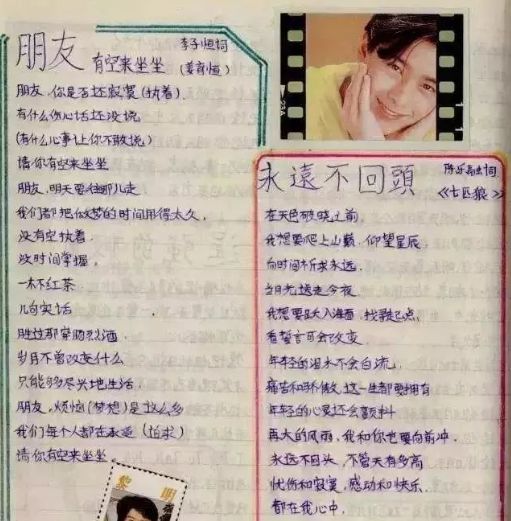 朋友
有空来坐坐
李子恒词
(姜育恒)
朋友,你是否还寂寞(执着)
有什么伤心话还没说
(有什么心事让你不敢说)
请你有空来坐坐
朋友,明天要往哪儿走
我们都把做梦的时间用得太久,
没有空执着.
没时间掌握.
一杯红茶
几句实话
胜过那穿肠烈酒.
岁月不曾改变什么
只能够尽兴地生活.
朋友,烦恼(梦想)是这么多
我们每个人都在承受(追求)
请你有空来坐坐.
黎明
永遠不回頭
词
《七匹狼》
在天色破晓之前.
我想要爬上山巅,仰望星辰
向时间祈求永远.
当月光送走今夜
我想要跃入海面,找寻起点,
看誓言可会改变
年轻的泪水不会白流,
痛苦和骄傲,这一生都要拥有
年轻的心灵还会颤抖
再大的风雨,我和你也要向前冲.
永远不回头,不管天有多高
忧伤和寂寞,感动和快乐,
都在我心中,